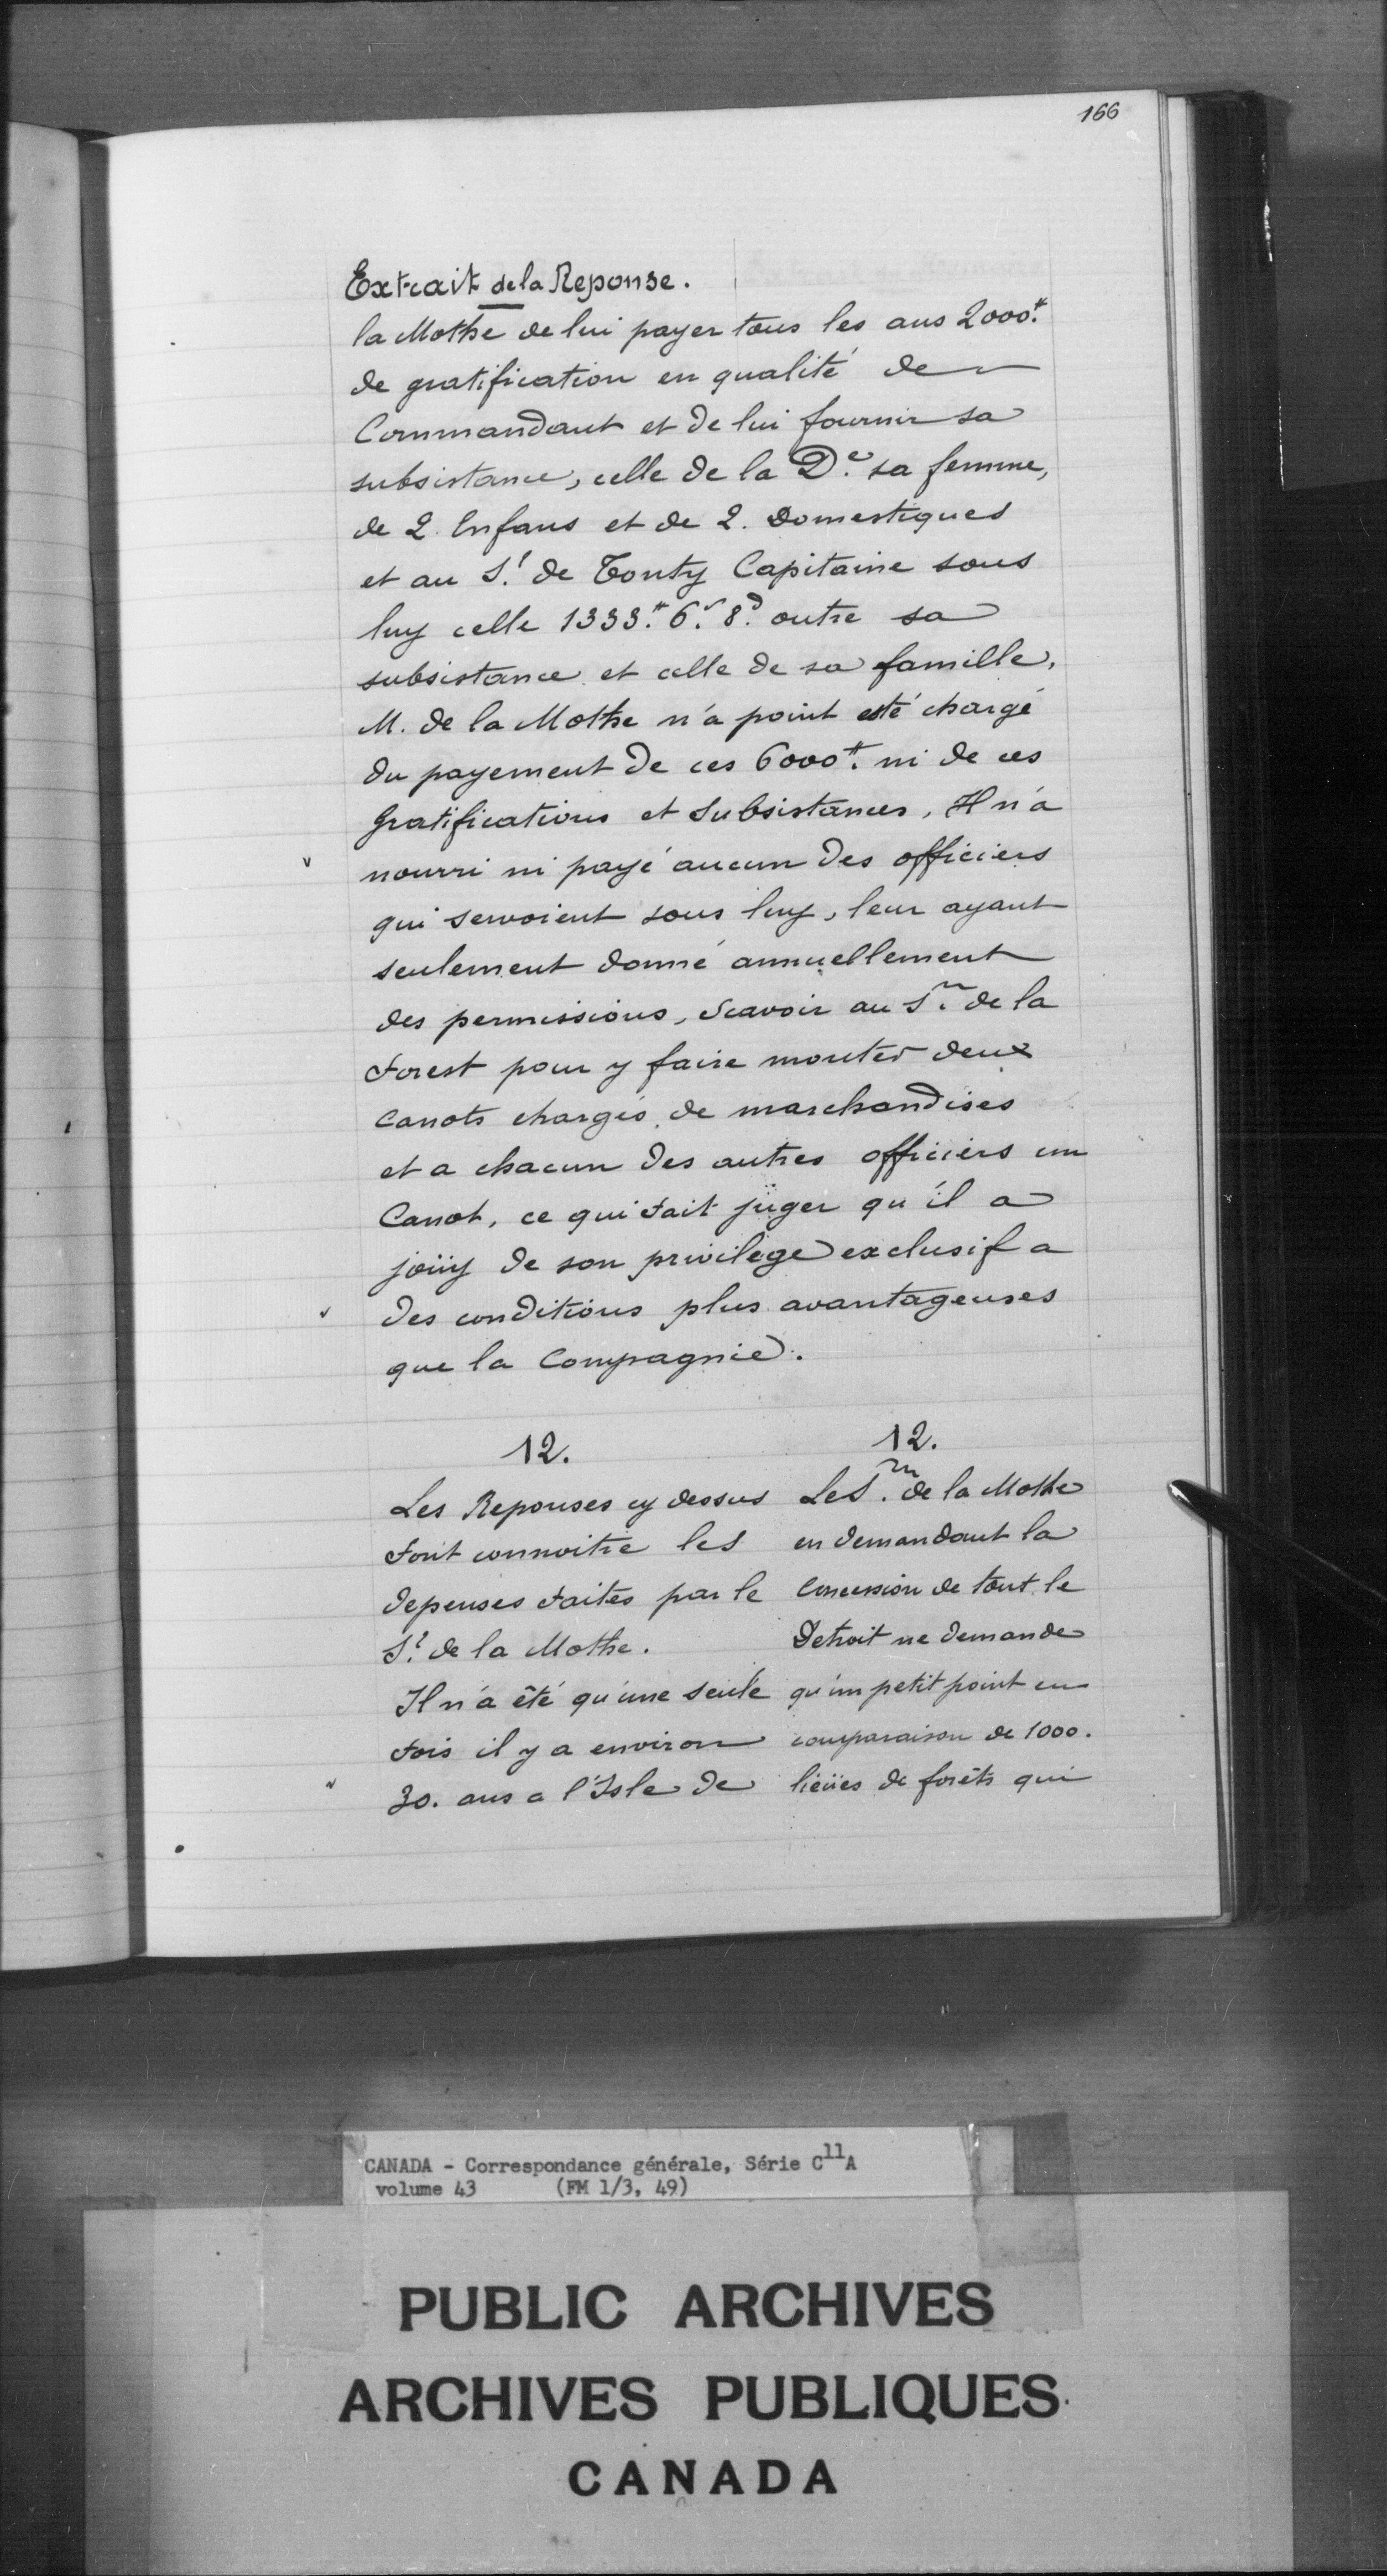 166
Extrait de la Reponse.
la Mothe de lui payer tous les ans 2000.#
de gratification en qualité de
Commandant et de lui fournir sa
subsistance, celle de la D.e sa femme,
de 2. Enfans et de 2. Domestiques
et au S.r de Tonty Capitaine sous
luy celle 1333.# 6.s 8.d outre sa
subsistance et celle de sa famille.
M. de la Mothe n'a point esté chargé
du payement de ces 6000.# ni de ces
gratifications et Subsistances. Il n'a
nourri ni payé aucun des officiers
qui servoient sous luy, leur ayant
seulement donné annuellement
des permissions, Scavoir au S.r de la
Forest pour y faire monter deux
Canots chargés de marchandises
et a chacun des autres officiers un
Canot, ce qui Fait juger qu'il a
joüy de son privilege exclusif a
des conditions plus avantageuses
que la Compagnie.
12.
Les Reponses cy dessus
Font connoitre les
depenses Faites par le
S.r de la Mothe.
Il n'a été qu'une seule
Fois il y a environ
30. ans a l'Isle de
12.
Le S.r de la Mothe
en demandant la
Concession de tout le
Detroit ne demande
qu'un petit point en
comparaison de 1000.
lieües de forêts qui
CANADA - Correspondance générale, Série C11A
volume 43 (FM 1/3, 49)
PUBLIC ARCHIVES
ARCHIVES PUBLIQUES
CANADA